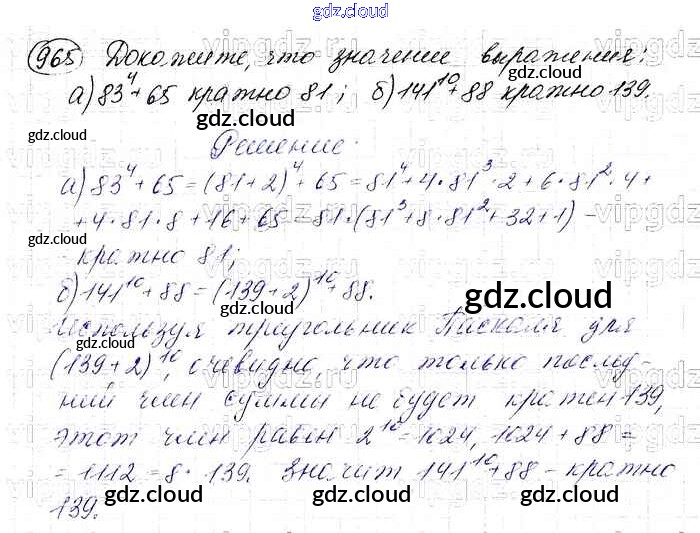 gdz.cloud
965 Докажите, что значение выражения:
а) 83⁴+65 кратно 81; б) 141¹⁰+88 кратно 139.
gdz.cloud
gdz.cloud
gdz.cloud
Решение.
а) 83⁴+65=(81+2)⁴+65=81⁴+4·81³·2+6·81²·4+
+4·81·8+16+65=81·(81³+8·81²+32+1) –
gdz.cloud
кратно 81;
б) 141¹⁰+88=(139+2)¹⁰+88.
gdz.cloud
Используя треугольник Паскаля для
(139+2)¹⁰, очевидно, что только послед-
ний член суммы не будет кратен 139,
gdz.cloud
этот член равен 2¹⁰=1024, 1024+88=
=1112=8·139. Значит 141¹⁰+88 – кратно
139.
gdz.cloud
gdz.cloud